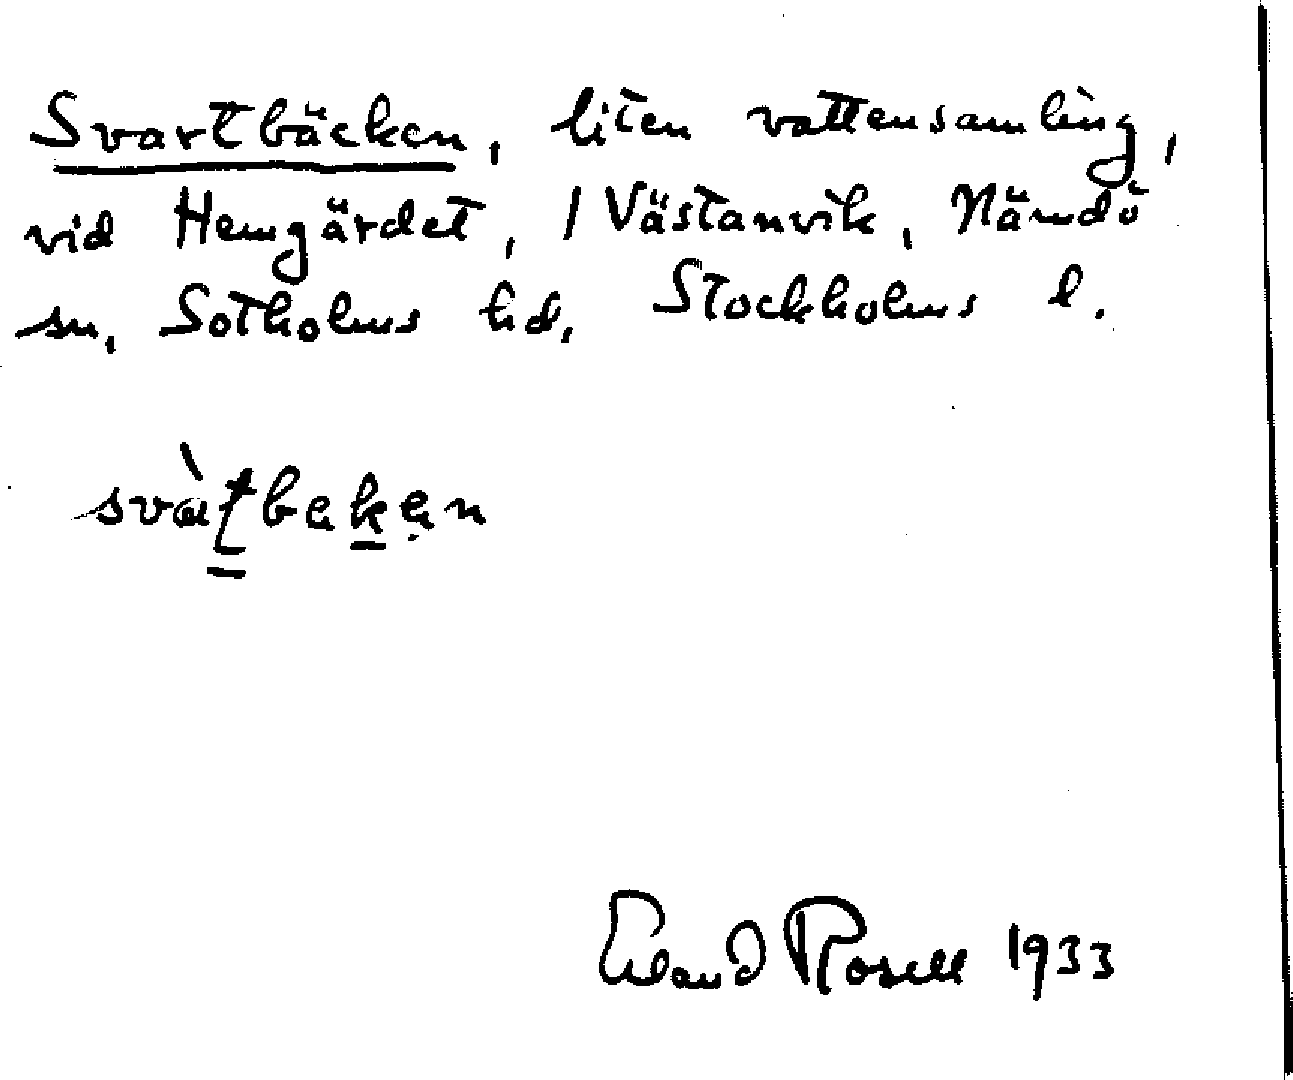 Svartbäcken, liten vattensamling,
vid Hemgärdet, / Västanvik, Nämdö
sn, Sotholms hd, Stockholms l.
svàtbeken
Erland Rosell 1933